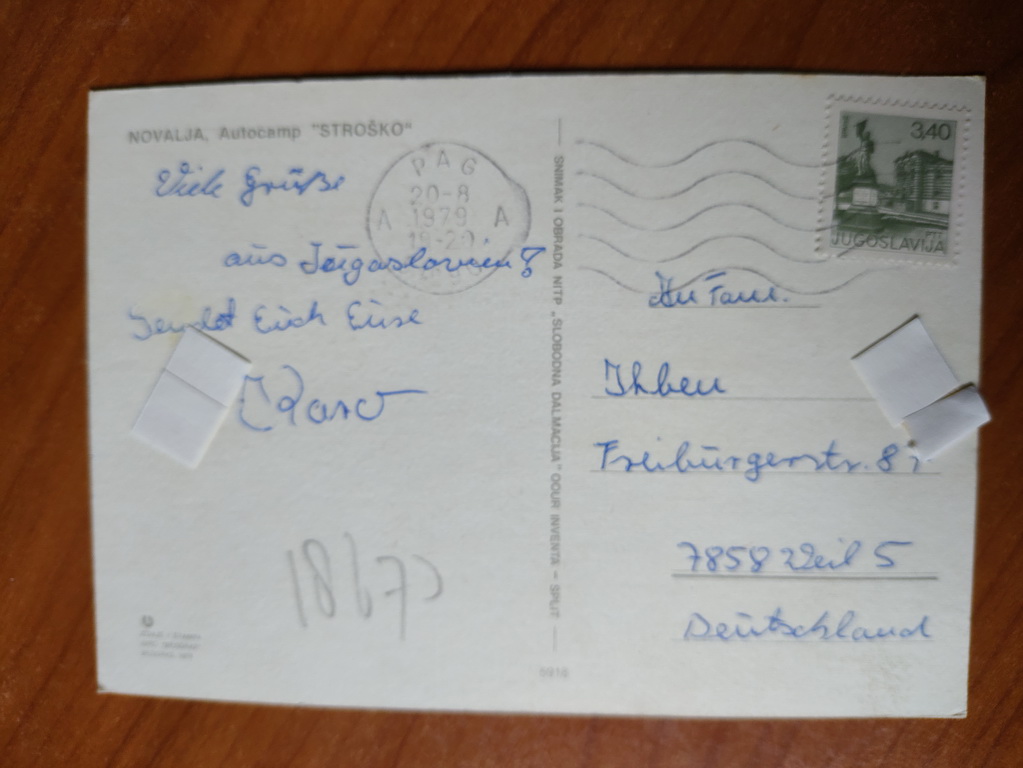 NOVALJA, Autocamp "STROŠKO"
Viele Grüße
aus Jugoslawien
sendet Euch Eure
PAG
20-8
1979
A A
SNIMAK I OBRADA NITP „SLOBODNA DALMACIJA" OOUR INVENTA – SPLIT
3,40
PTT
JUGOSLAVIJA
An Fam.
Ihben
Freiburgerstr.
7858 Weil 5
Deutschland